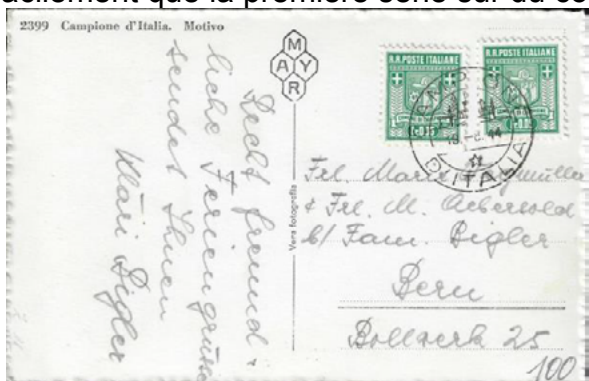 2399 Campione d'Italia. Motivo
MAYR
R.R. POSTE ITALIANE
R.R. POSTE ITALIANE
D'ITALIA
Recht freund-
liche Feriengrüsse
sendet Ihnen
Kläri Bigler
Vera fotografia
Frl.
& Frl. M. Aebersold
b/ Fam. Bigler
Bern
Bollwerk 25
100